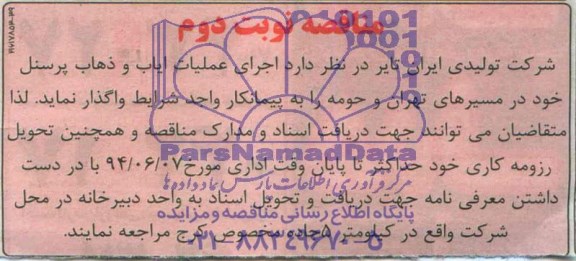 مناقصه نوبت دوم
شرکت تولیدی ایران تایر در نظر دارد اجرای عملیات ایاب و ذهاب پرسنل
خود در مسیرهای تهران و حومه را به پیمانکار واجد شرایط واگذار نماید. لذا
متقاضیان می توانند جهت دریافت اسناد و مدارک مناقصه و همچنین تحویل
رزومه کاری خود حداکثر تا پایان وقت اداری مورخ ۹۴/۰۶/۰۷ با در دست
داشتن معرفی نامه جهت دریافت و تحویل اسناد به واحد دبیرخانه در محل
شرکت واقع در کیلومتر ۵ جاده مخصوص کرج مراجعه نمایند.
ParsNamadData
مرکز فرآوری اطلاعات پارس نماد داده ها
پایگاه اطلاع رسانی مناقصه و مزایده
۰۲۱-۸۸۳۴۹۶۷۰-۵